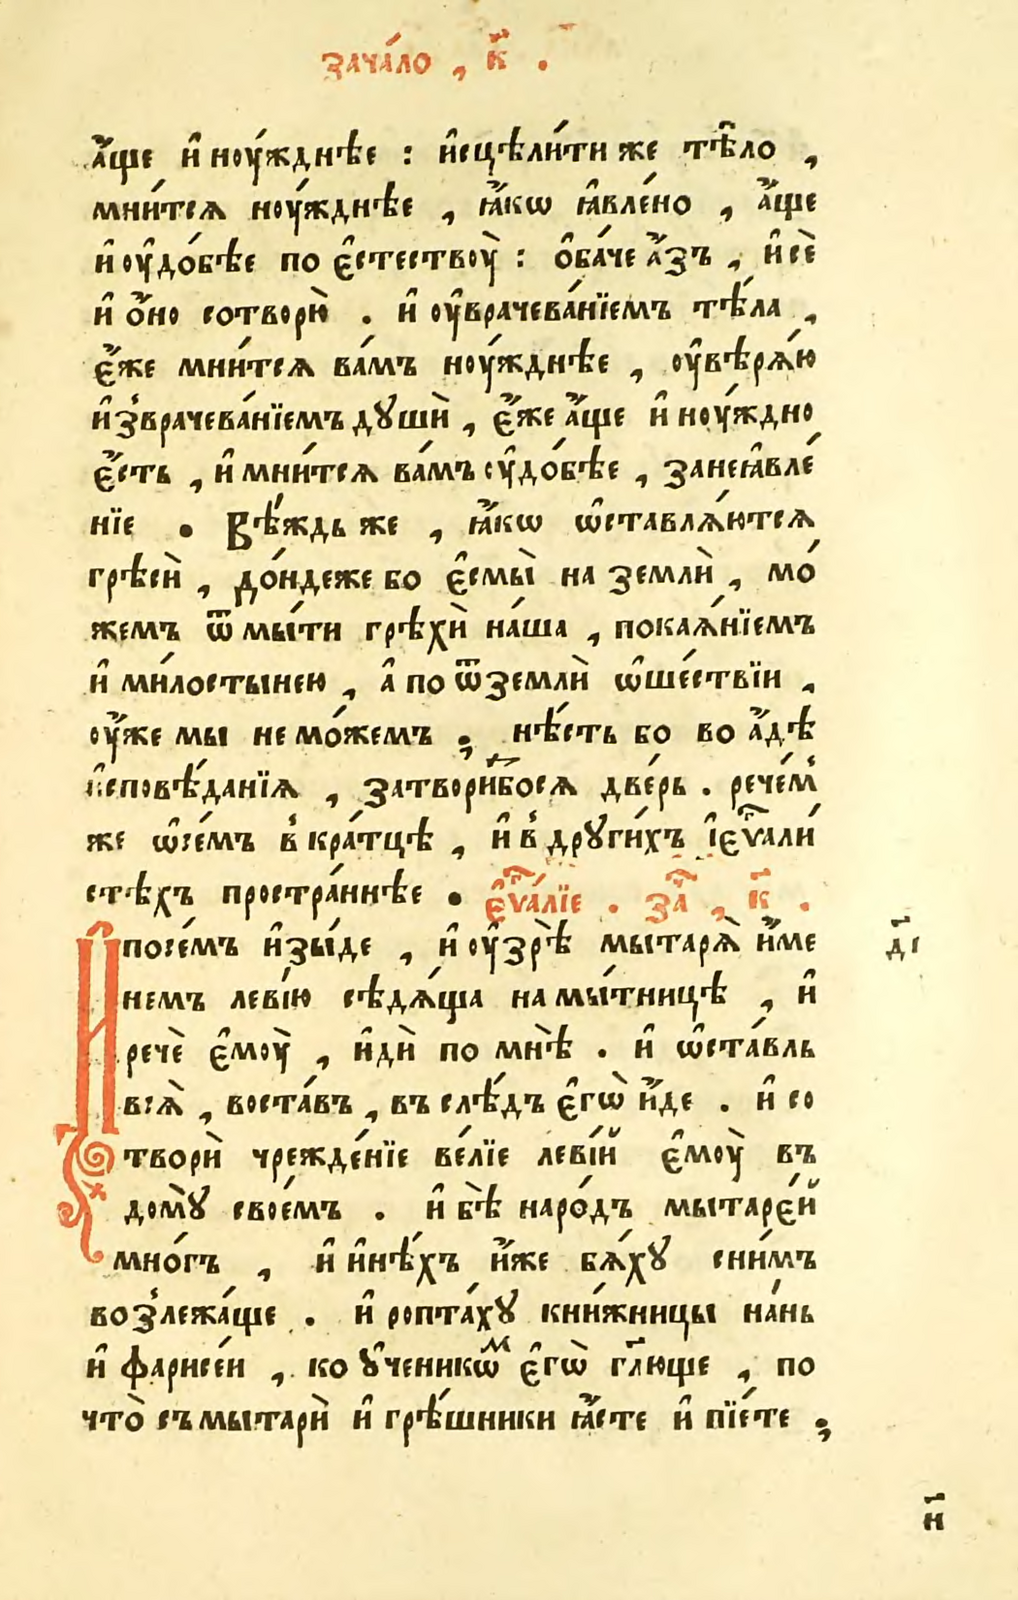 зача́ло , к҃ .
а҆́ще и҆ ноу́жднѣе : и҆сцѣли́ти же тѣ̑ло ,
мни́тсѧ ноу́жднѣе , ꙗ҆́кѡ ꙗ҆вле́но , а҆́ще
и҆ оу҆до́бѣе по є҆стествоу̀ : ѻ҆ба́че а҆́зъ , и҆ сѐ
и҆ ѻ҆́но сотворю̀ . и҆ оу҆врачева́нїемъ тѣ́ла ,
є҆́же мни́тсѧ ва́мъ ноу́жднѣе , оу҆вѣрѧ́ю
и҆зврачева́нїемъ дꙋшѝ , є҆́же а҆́ще и҆ ноу́ждно
є҆́сть , и҆ мни́тсѧ ва́мъ оу҆до́бѣе , занеꙗ҆вле́
нїе . Вѣ́ждь же , ꙗ҆́кѡ ѡ҆ставлѧ́ютсѧ
грѣсѝ , до́ндеже бо є҆смы̀ на землѝ , мо́
жемъ ѿ мы́ти грѣхѝ на́ша , покаѧ́нїемъ
и҆ ми́лостынею , а҆ по ѿ землѝ ѡ҆ше́ствїи ,
оу҆́же мы не мо́жемъ ; нѣ́сть бо во а҆́дѣ
и҆сповѣ́данїѧ , затвори́босѧ две́рь . рече́м
же ѡ҆се́мъ в кра́тцѣ , и҆ в дрꙋги́хъ і҆є҆ѵ҃али́
стѣхъ простра́ннѣе . є҆ѵ҃а́лїе . за҃ , к҃ .
И҆ посе́мъ и҆зы́де , и҆ оу҆зрѣ̀ мытарѧ̀ и҆́ме
немъ леві́ю сѣдѧ́ща на мы́тницѣ , и҆
речѐ є҆моу̀ , и҆дѝ по мнѣ̀ . и҆ ѡ҆ста́вль
всѧ̀ , воста́въ , въ слѣ́дъ є҆гѡ̀ и҆́де . и҆ со
творѝ чрежде́нїе ве́лїе леві́й є҆моу̀ въ
домꙋ̀ свое́мъ . и҆ бѣ̀ наро́дъ мытаре́й
мно́гъ , и҆ и҆нѣ́хъ и҆́же бѧ́хꙋ сни́мъ
возлежа́ще . и҆ ропта́хꙋ кни́жницы на́нь
и҆ фарисе́и , ко ᲂу҆ченикѡ́м є҆гѡ̀ гл҃юще , по
что̀ съ мытарѝ и҆ грѣ́шники ꙗ҆́сте и҆ пїе́те ;
д҃і
н҃